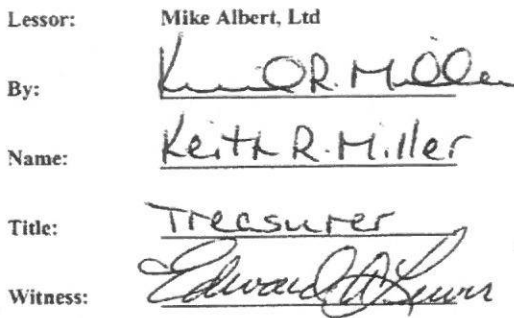 Lessor: Mike Albert, Ltd
By: Keith R. Miller
Name: Keith R. Miller
Title: Treasurer
Witness: Edward A Lewis